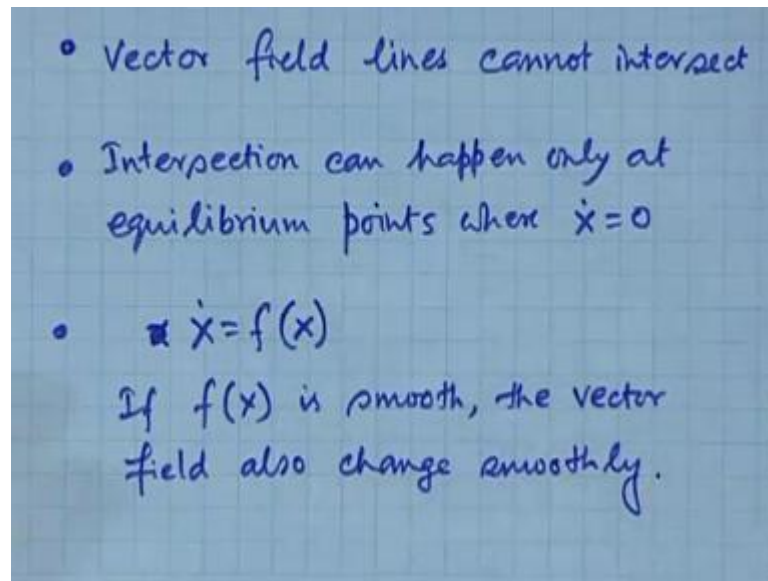 • Vector field lines cannot intersect
• Intersection can happen only at
equilibrium points where ẋ = 0
• ẋ = f(x)
If f(x) is smooth, the vector
field also change smoothly.